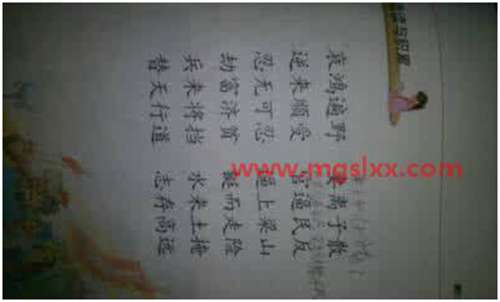 与积累
哀鸿遍野 妻离子散
逆来顺受 官逼民反
忍无可忍 逼上梁山
劫富济贫 铤而走险
兵来将挡 水来土掩
替天行道 志存高远
www.mgslxx.com